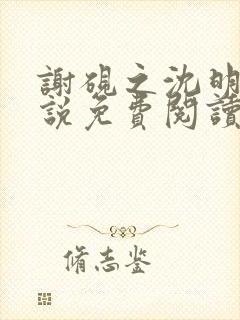 謝硯之沈明
說免費閱讀
脩志鉴